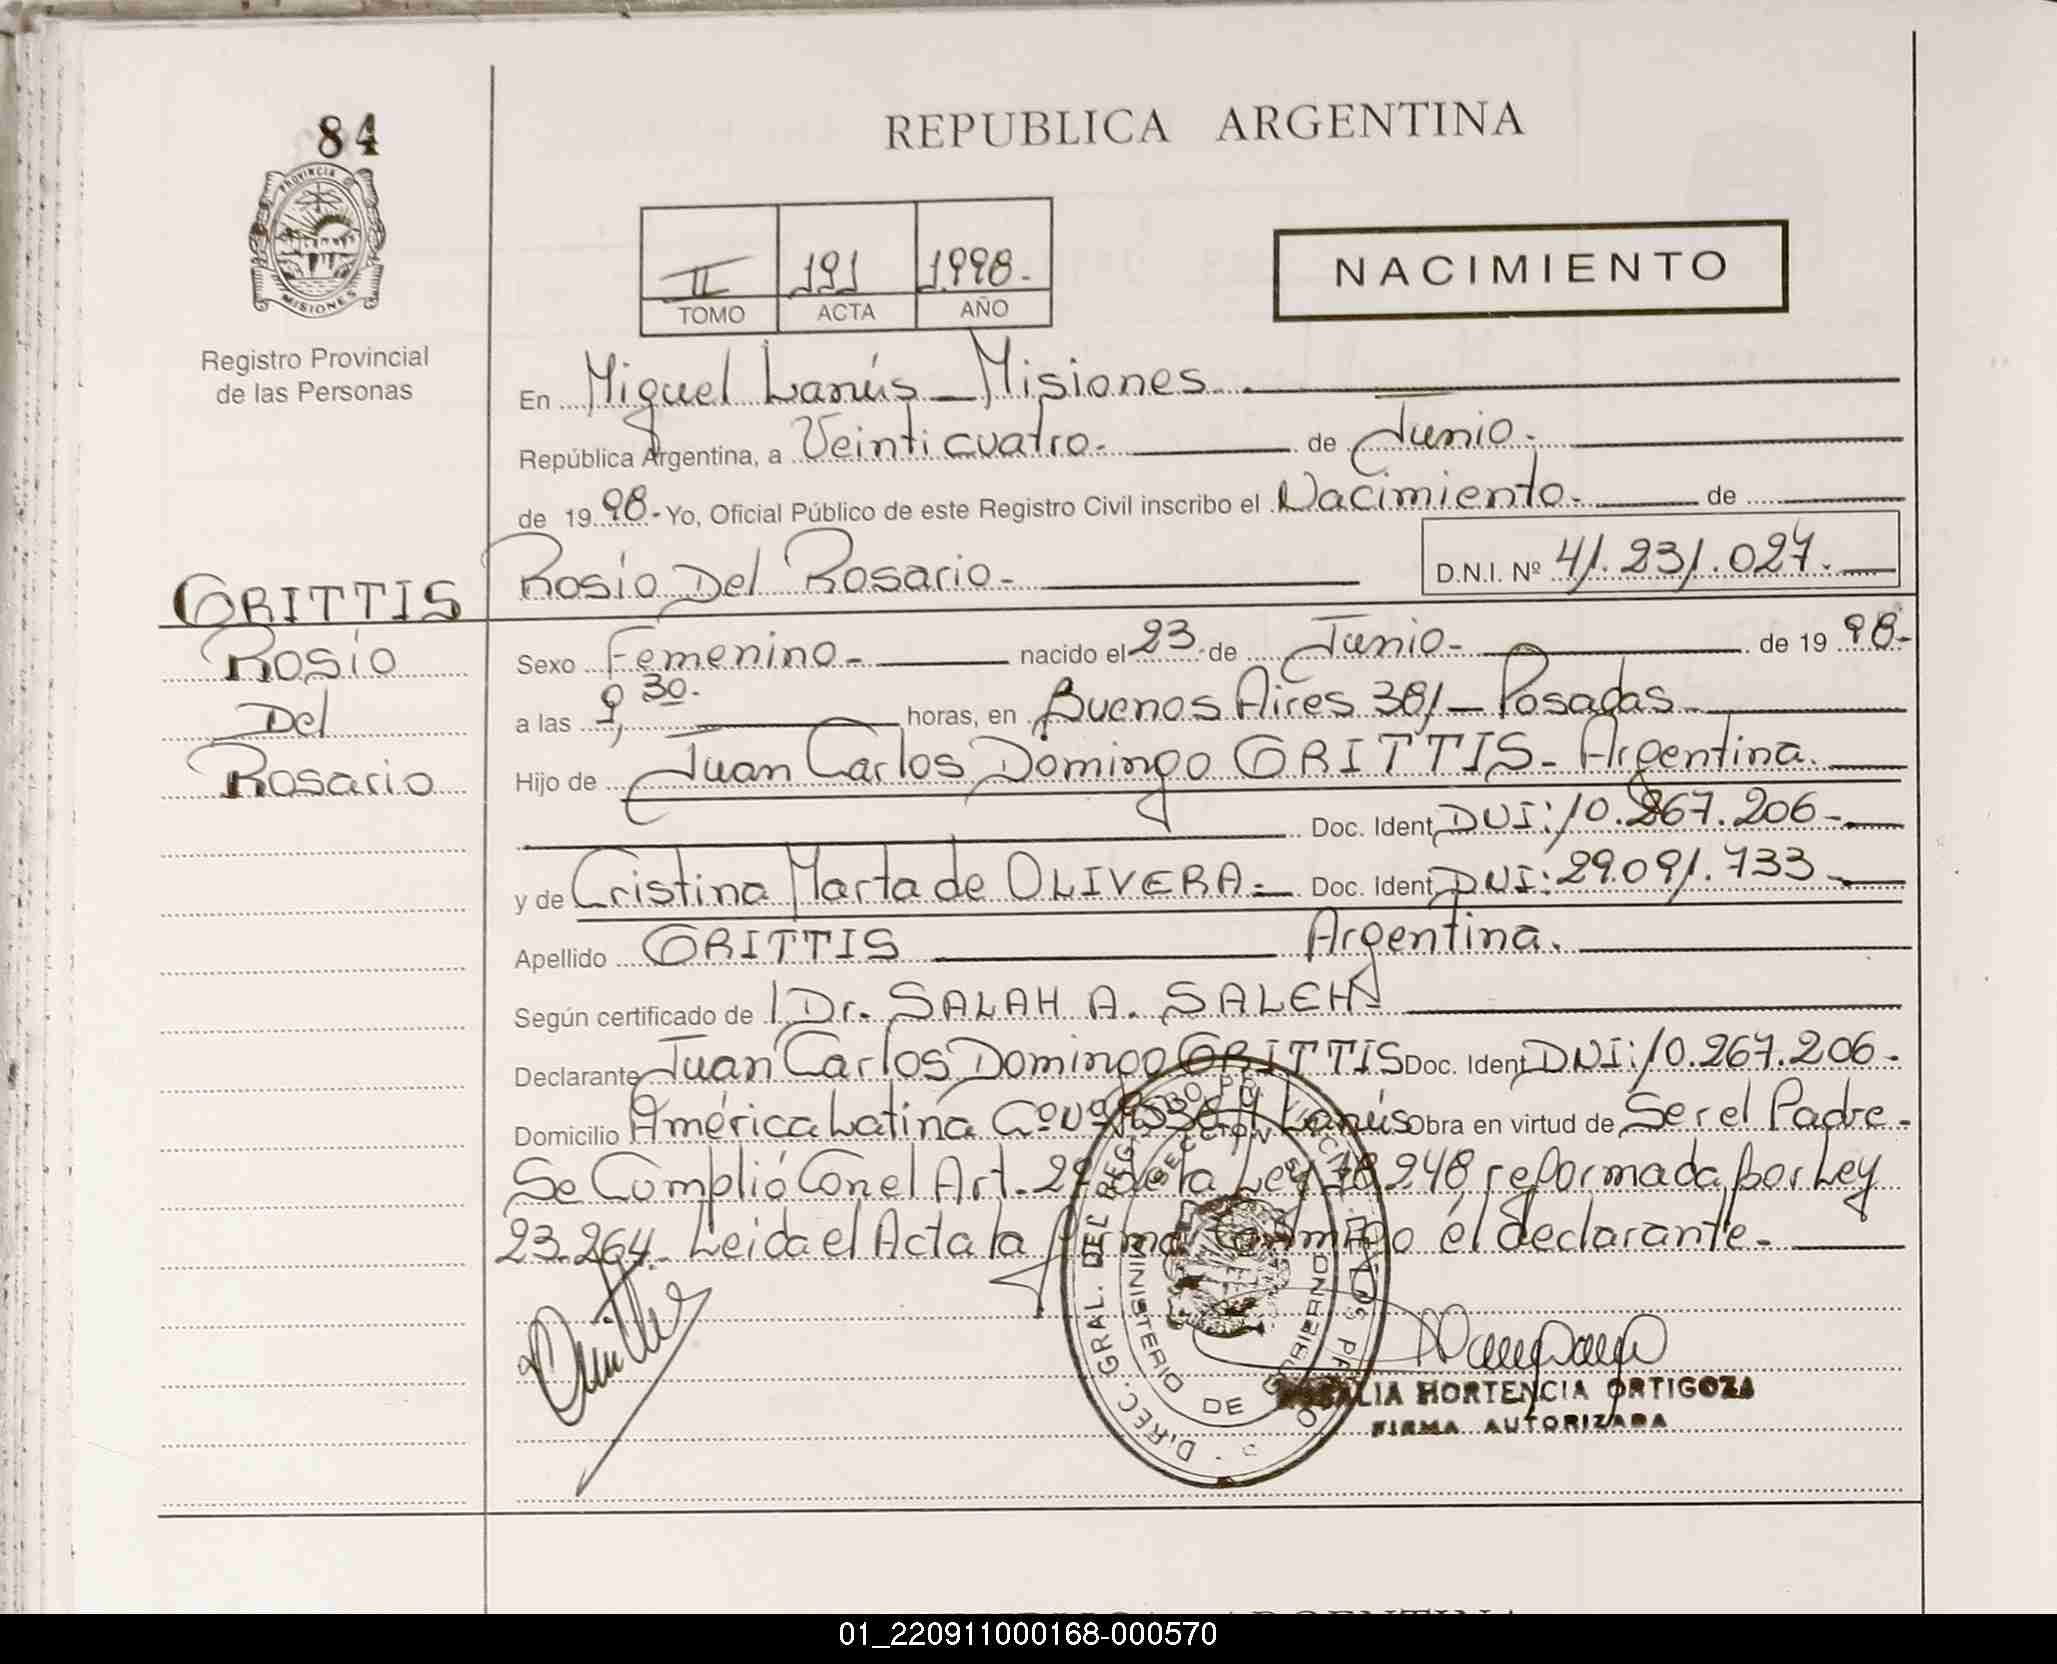 84
PROVINCIA
MISIONES
Registro Provincial
de las Personas
REPUBLICA ARGENTINA
II 191 1.998.-
TOMO ACTA AÑO
NACIMIENTO
En Miguel Lanús - Misiones.
República Argentina, a Veinticuatro. de Junio.-
de 19 98.- Yo, Oficial Público de este Registro Civil inscribo el Nacimiento.- de
Rosío Del Rosario.- D.N.I. Nº 41.231.027.
GRITTIS
Rosío
Del
Rosario
Sexo Femenino.- nacido el 23.- de Junio.- de 19 98.-
a las 9,30.- horas, en Buenos Aires 381 - Posadas
Hijo de Juan Carlos Domingo GRITTIS - Argentina.
Doc. Ident. DNI: 10.267.206-
y de Cristina Marta de OLIVERA.- Doc. Ident. DNI: 29.091.733
Apellido GRITTIS Argentina.
Según certificado de Dr. SALAH A. SALEH
Declarante Juan Carlos Domingo GRITTIS Doc. Ident. DNI: 10.267.206.-
Domicilio América Latina Lanús Obra en virtud de Ser el Padre.-
Se Cumplió Con el Art. de la Ley 18.248 reformada por Ley
23.264. Leida el Acta la firma Conmigo él declarante.-
DIREC. GRAL. DEL
MINISTERIO DE GOBIERNO
HORTENCIA ORTIGOZA
FIRMA AUTORIZADA
REPUBLICA ARGENTINA
01_220911000168-000570